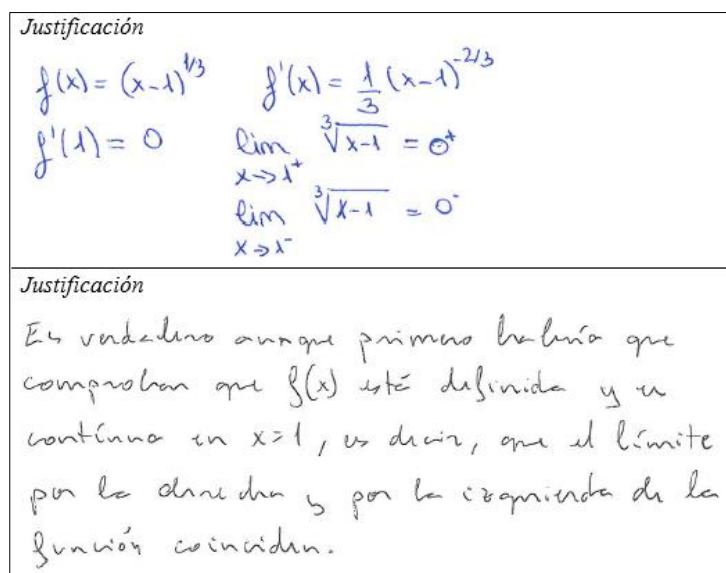 Justificación
f(x) = (x-1)^{1/3}    f'(x) = \frac{1}{3} (x-1)^{-2/3}
f'(1) = 0    lim_{x→1⁺} ∛(x-1) = 0⁺
lim_{x→1⁻} ∛(x-1) = 0⁻
Justificación
Es verdadero aunque primero habría que
comprobar que f(x) está definida y es
contínua en x=1, es decir, que el límite
por la derecha y por la izquierda de la
función coinciden.